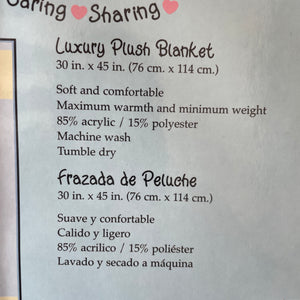 Caring Sharing
Luxury Plush Blanket
30 in. x 45 in. (76 cm. x 114 cm.)
Soft and comfortable
Maximum warmth and minimum weight
85% acrylic / 15% polyester
Machine wash
Tumble dry
Frazada de Peluche
30 in. x 45 in. (76 cm. x 114 cm.)
Suave y confortable
Calido y ligero
85% acrílico / 15% poliéster
Lavado y secado a máquina